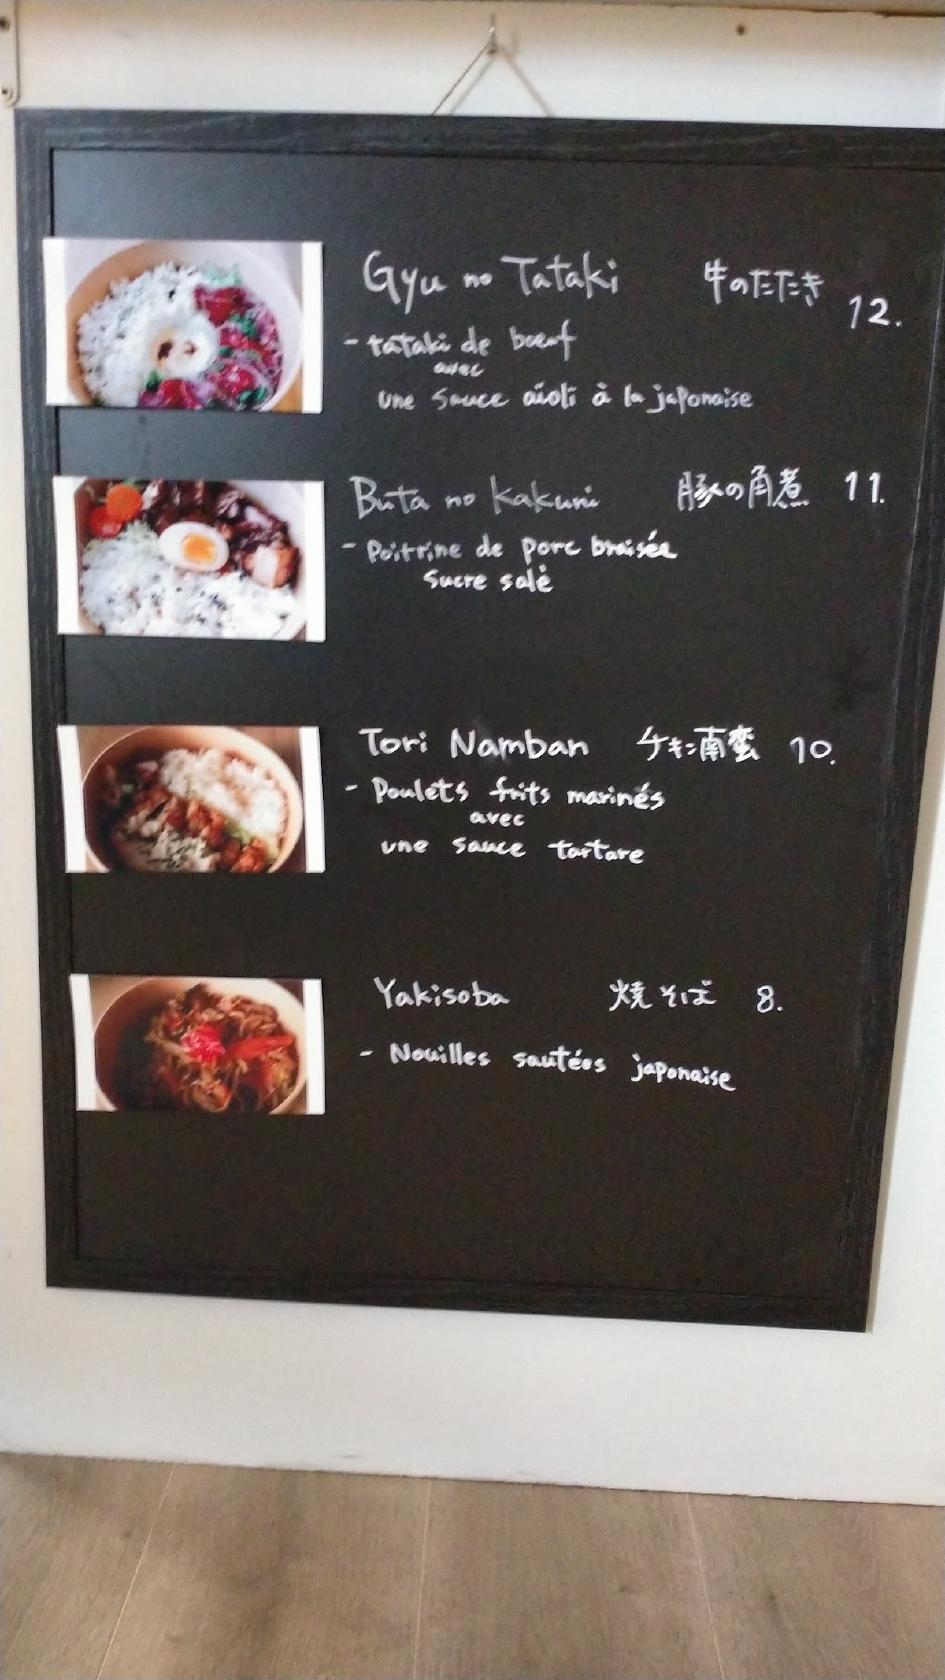 Gyu no Tataki 牛のたたき 12.
- tataki de bœuf
avec
une sauce aïoli à la japonaise
Buta no kakuni 豚の角煮 11.
- Poitrine de porc braisée
sucre salé
Tori Namban チキン南蛮 10.
- Poulets frits marinés
avec
une sauce tartare
Yakisoba 焼そば 8.
- Nouilles sautées japonaise